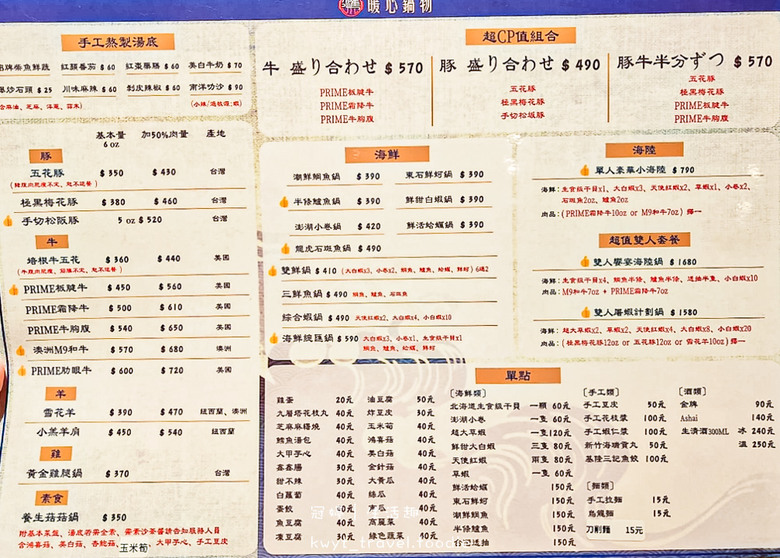 暖心鍋物
手工熬製湯底
招牌柴魚鮮蔬 紅顏番茄 $ 60 紅棗藥膳 $ 60 美白牛奶 $ 70
爆炒石頭 $ 25 川味麻辣 $ 60 剝皮辣椒 $ 60 南洋叻沙 $ 90
基本量 6 oz 加50%肉量 產地
豚
五花豚 $ 350 $ 430 台灣
極黑梅花豚 $ 380 $ 460 台灣
手切松阪豚 5 oz $ 520 台灣
牛
培根牛五花 $ 360 $ 440 美國
PRIME板腱牛 $ 450 $ 560 美國
PRIME霜降牛 $ 500 $ 610 美國
PRIME牛胸腹 $ 540 $ 650 美國
澳洲M9和牛 $ 570 $ 680 澳洲
PRIME肋眼牛 $ 600 $ 720 美國
羊
雪花羊 $ 390 $ 470 紐西蘭、澳洲
小羔羊肩 $ 450 $ 540 紐西蘭
雞
黃金雞腿鍋 $ 370 台灣
素食
養生菇菇鍋 $ 350
附基本菜盤、湯底若需全素、需素沙茶醬請告知服務人員
大甲芋心、手工豆皮
玉米筍
超CP值組合
牛 盛り合わせ $ 570
PRIME板腱牛
PRIME霜降牛
PRIME牛胸腹
豚 盛り合わせ $ 490
五花豚
極黑梅花豚
手切松坂豚
豚牛半分ずつ $ 570
五花豚
極黑梅花豚
PRIME板腱牛
PRIME牛胸腹
海鮮
潮鮮鯛魚鍋 $ 390 東石鮮蚵鍋 $ 390
半條鱸魚鍋 $ 390 鮮甜白蝦鍋 $ 390
澎湖小卷鍋 $ 420 鮮活蛤蠣鍋 $ 390
龍虎石斑魚鍋 $ 490
雙鮮鍋 $ 410 (大白蝦x3、小卷x2、鯛魚、鱸魚、蛤蠣、鮮蚵) 6選2
三鮮魚鍋 $ 490 鯛魚、鱸魚、石斑魚
綜合蝦鍋 $ 490 天使紅蝦x2、大白蝦x4、小白蝦x10
海鮮總匯鍋 $ 590 大白蝦x3、小卷x1、生食級干貝x1
鯛魚、鱸魚、蛤蠣、鮮蚵
海陸
單人豪華小海陸 $ 790
海鮮：生食級干貝x1、大白蝦x3、天使紅蝦x2、草蝦x1、小卷x2、
石斑魚2oz、鱸魚2oz
肉品：( PRIME霜降牛10oz or M9和牛7oz ) 擇一
超值雙人套餐
雙人饗宴海陸鍋 $ 1680
海鮮：生食級干貝x4、鯛魚半條、鱸魚半條、透抽半隻、小白蝦x10
肉品：M9和牛7oz + PRIME霜降牛7oz
雙人屠蝦計劃鍋 $ 1580
海鮮：超大草蝦x2、草蝦x2、天使紅蝦x4、大白蝦x8、小白蝦x20
肉品：( 極黑梅花豚12oz or 五花豚12oz or 雪花羊10oz ) 擇一
單點
雞蛋 20元
九層塔花枝丸 40元
芝麻麻糬燒 40元
鱈魚湯包 40元
大甲芋心 40元
鑫鑫腸 30元
甜不辣 30元
白蘿蔔 40元
蛋餃 40元
魚豆腐 40元
凍豆腐 30元
油豆腐 50元
炸豆皮 30元
玉米筍 40元
鴻喜菇 40元
美白菇 40元
金針菇 40元
大黃瓜 40元
絲瓜 40元
南瓜 40元
高麗菜 40元
綠色蔬菜 40元
[海鮮類]
北海道生食級干貝 一顆 60元
澎湖小卷 一隻 60元
超大草蝦 一隻120元
鮮甜大白蝦 三隻 80元
天使紅蝦 兩隻 80元
草蝦 一隻 60元
鮮活蛤蠣 150元
東石鮮蚵 150元
潮鮮鯛魚 150元
半條鱸魚 150元
台灣透抽 150元
[手工類]
手工豆皮 50元
手工花枝漿 100元
手工蝦仁漿 100元
新竹海瑞貢丸 50元
基隆三記魚餃 100元
[麵類]
手工拉麵 15元
烏龍麵 15元
刀削麵 15元
[酒類]
金牌 90元
Ashai 140元
生清酒300ML 冰 240元
溫 250元
kwyt-travel.foody